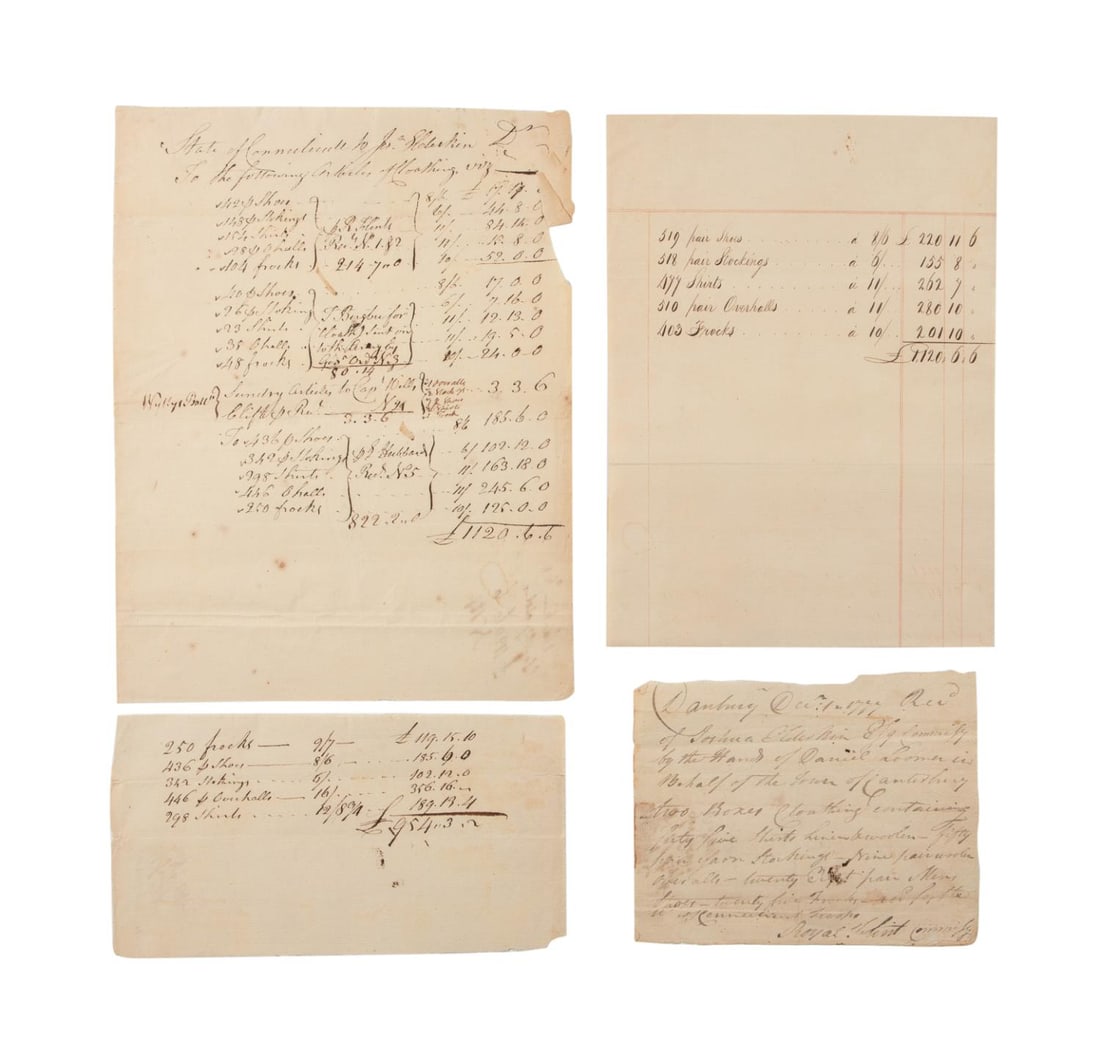 State of Connecticutt to Jos.a Elderkin Dr
To the following Articles of Cloathing viz
42 p Shoes 8/6 £ 17.17.
148 p Stokings 6/. 44.8.0
154 Shirts 11/ 84.14.0
98 Ohalls 11/.
104 frocks 10/. 52.0.0
p R. Flint
Rect No 1 & 2
214.7.0
40 p Shoes 8/6 17.0.0
26 p Stokings 6/. 7.16.0
23 Shirts 11/. 12.13.0
35 Ohalls 11/. 19.5.0
48 frocks 10/. 24.0.0
Cloath Sent on
to the Army by
Ord No 3
80.14
Sundry Articles to Capt Wills 3.3.6
Clift p Rec.t No 4
3.3.6
To 436 p Shoes 8/6 185.6.0
342 p Stokings 6/ 102.12.0
298 Shirts 11/. 163.18.0
446 Ohalls 11/ 245.6.0
250 frocks 10/. 125.0.0
p J Hubbard
Rect No 5
822.2.0
£1120.6.6
519 pair Shoes a 8/6 £ 220 11 6
518 pair Stockings a 6/ 155 8 "
477 Shirts a 11/ 262 7 "
510 pair Overhalls a 11/ 280 10 "
403 Frocks a 10/ 201 10 "
£ 1120.6.6
250 frocks — 9/7— £ 119.15.10
436 p Shoes — 8/6 185.6.0
342 Stokings 6/ 102.12.0
446 p Overhalls — 16/ 356.16.
298 Shirts 12/8¾ 189.13.4
£ 954.3.2
Danbury Rec.d
of Joshua Elderkin Esq Commisy
by the Hands of Daniel Loomer in
Behalf of the Town of Canterbury
two Boxes Cloathing Containing
forty five Shirts Linen & woolen — fifty
pair yarn Stockings — Nine pair woolen
overalls — twenty Eight pair Mens
Shoes — twenty five Frocks — for the
Connecticut Troops
Royal Flint Commisy